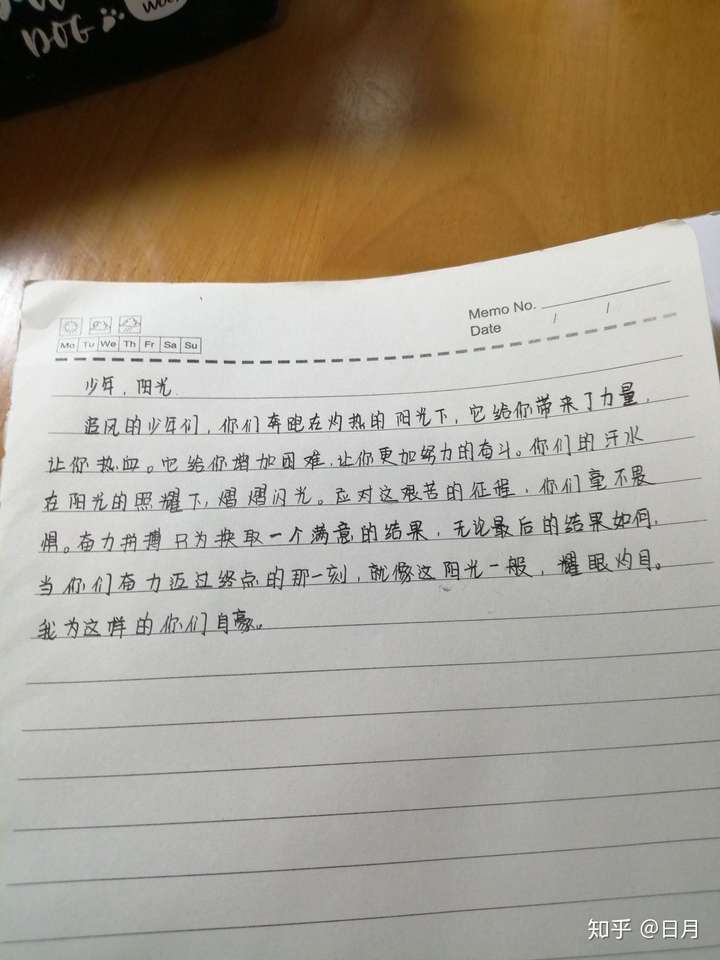 DOG
WOO
Memo No.
Date / /
Mo Tu We Th Fr Sa Su
少年，阳光
追风的少年们，你们奔跑在灼热的阳光下，它给你带来了力量，
让你热血。它给你增加困难，让你更加努力的奋斗。你们的汗水
在阳光的照耀下，熠熠闪光。应对这艰苦的征程，你们毫不畏
惧。奋力拼搏只为换取一个满意的结果，无论最后的结果如何，
当你们奋力迈过终点的那一刻，就像这阳光一般，耀眼灼目。
我为这样的你们自豪。
知乎 @日月